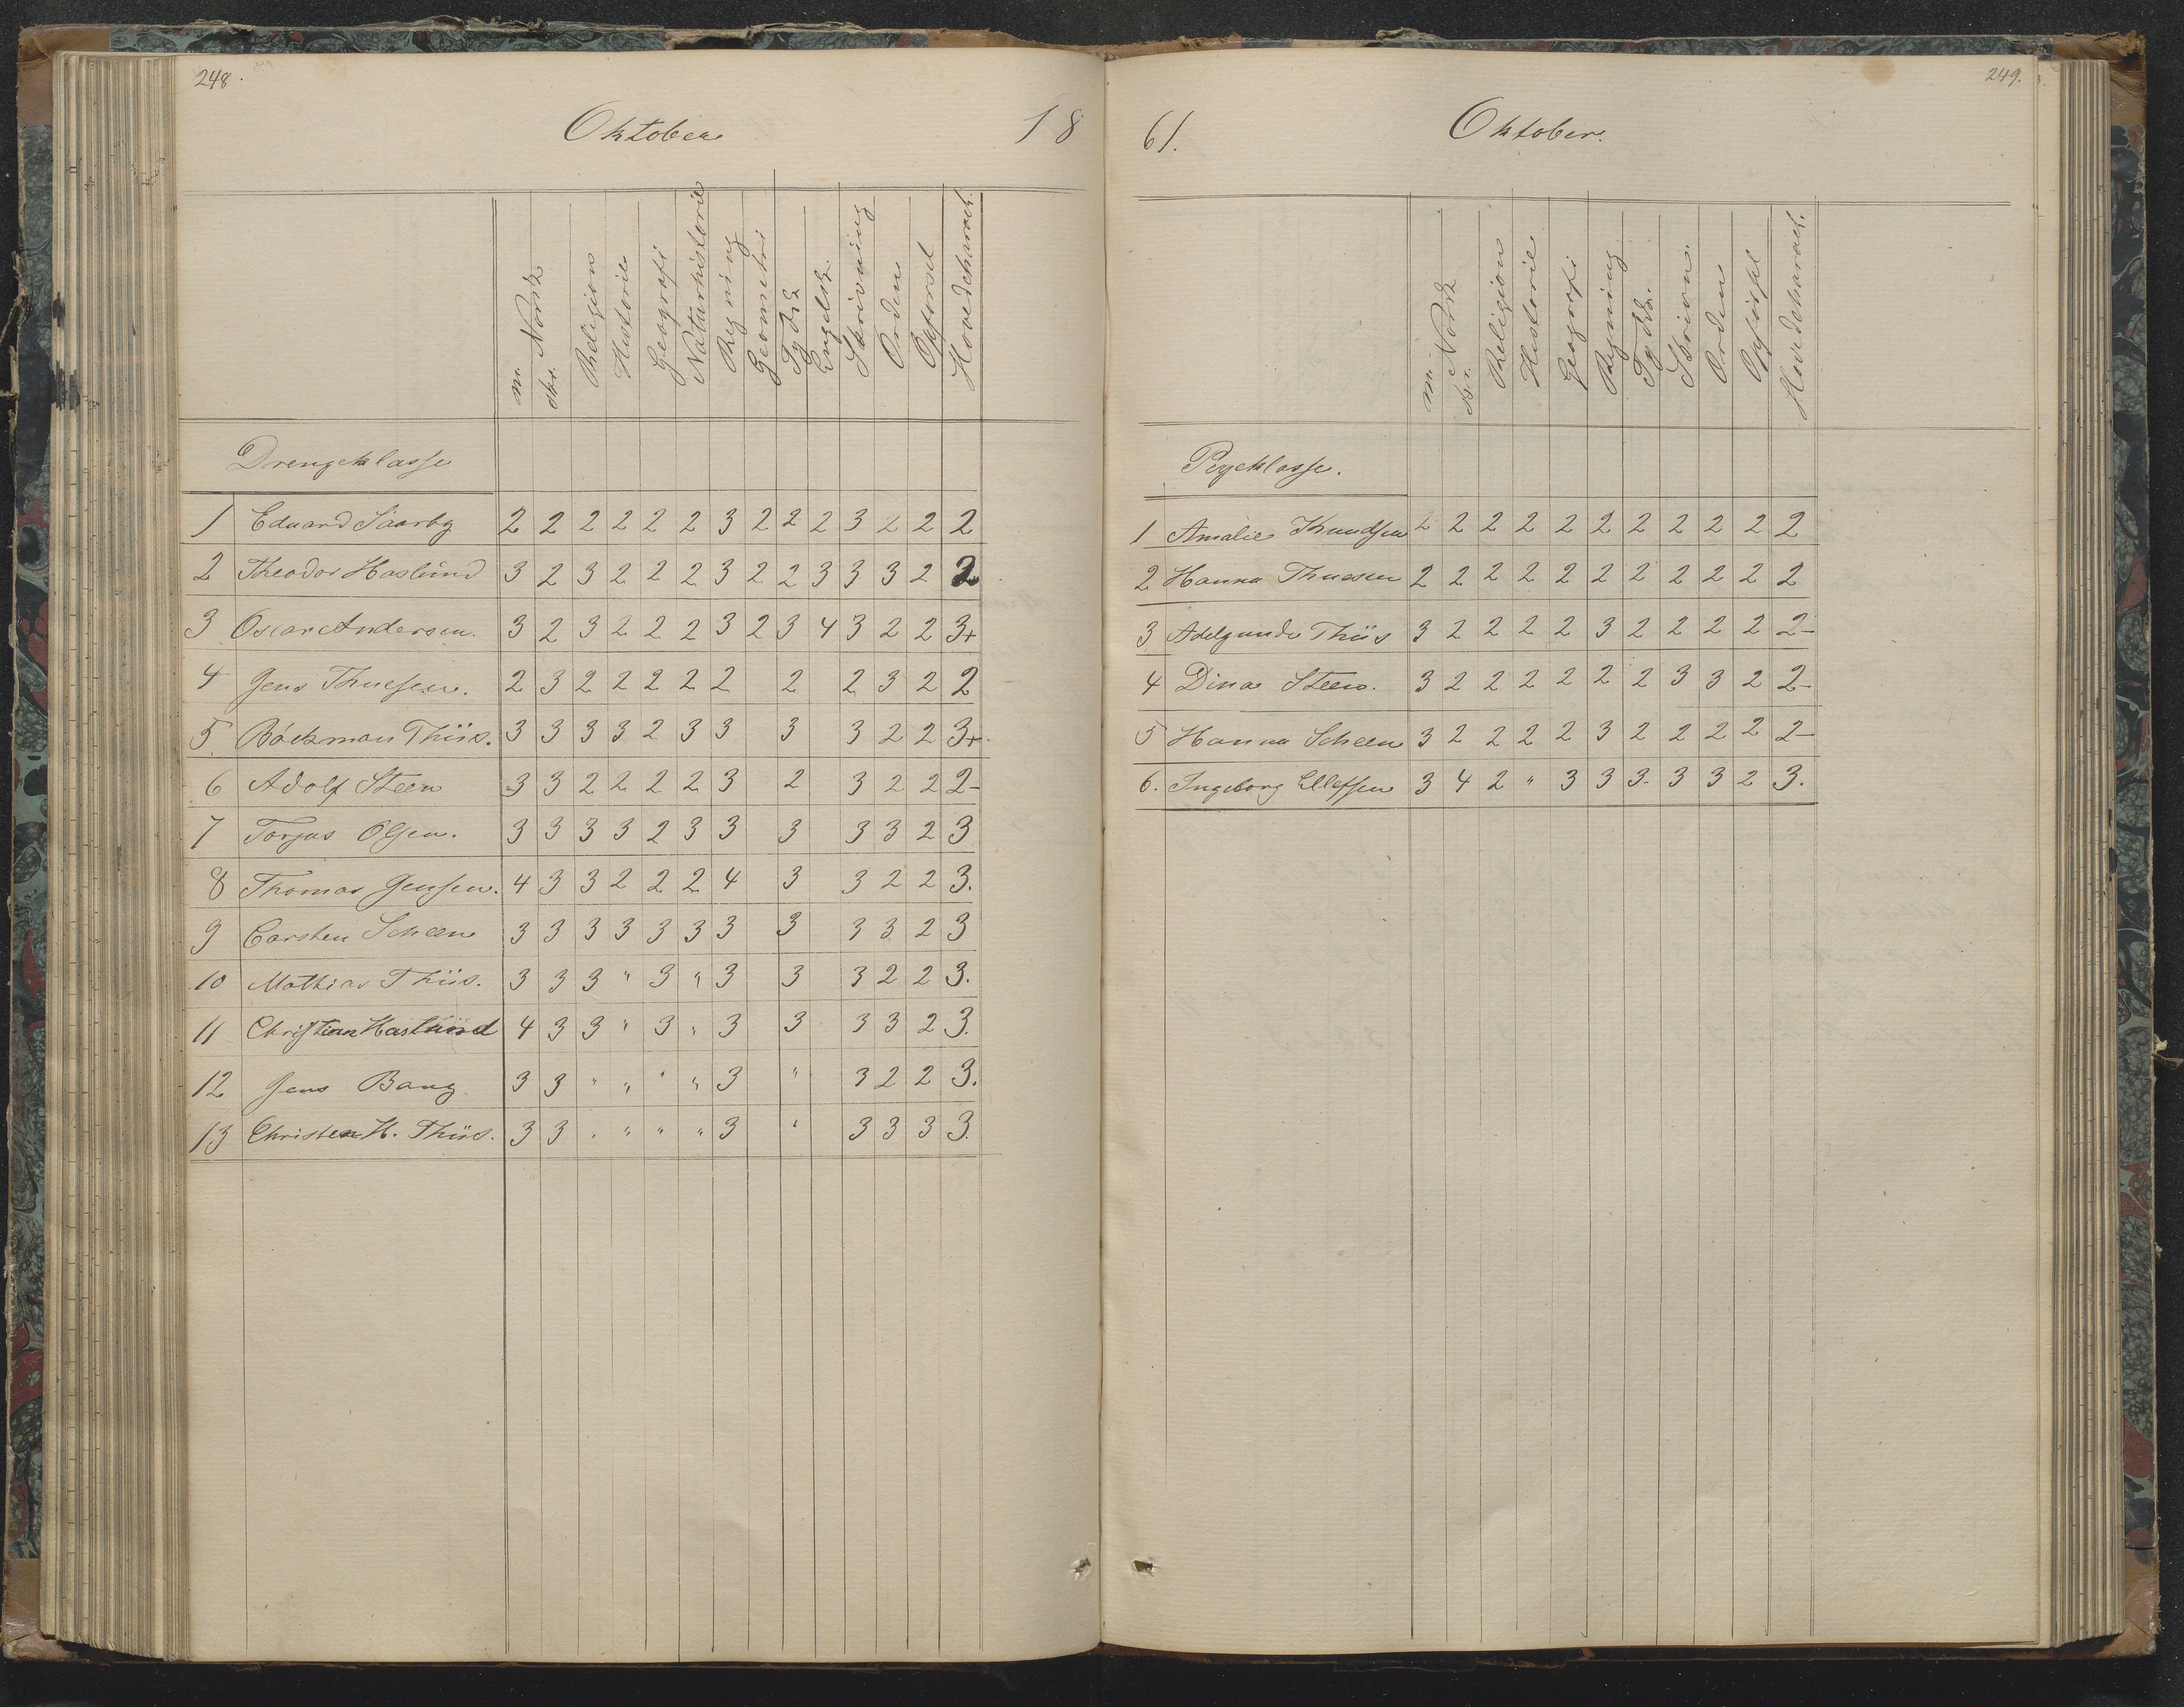 248.
Oktober 18
m. Norsk
skr.
Religion
Historie
Geografi
Naturhistorie
Regning
Geometri
Tydsk
Engelsk.
Skrivning
Orden
Opførsel
Hovedcharact.
Drengeklasse
1 Eduard Saarby 2 2 2 2 2 2 3 2 2 2 3 2 2 2
2 Theodor Haslund 3 2 3 2 2 2 3 2 2 3 3 3 2 2
3 Oscar Andersen. 3 2 3 2 2 2 3 2 3 4 3 2 2 3+
4 Jens Thuesen. 2 3 2 2 2 2 2 2 2 3 2 2
5 Böckman Thiis. 3 3 3 3 2 3 3 3 3 2 2 3+
6 Adolf Steen 3 3 2 2 2 2 3 2 3 2 2 2-
7 Torjus Olsen. 3 3 3 3 2 3 3 3 3 3 2 3
8 Thomas Jensen. 4 3 3 2 2 2 4 3 3 2 2 3.
9 Carsten Scheen 3 3 3 3 3 3 3 3 3 3 2 3
10 Mathias Thiis. 3 3 3 " 3 " 3 3 3 2 2 3.
11 Christian Haslund 4 3 3 " 3 " 3 3 3 3 2 3.
12 Jens Bang 3 3 " " " " 3 " 3 2 2 3.
13 Christen H. Thiis. 3 3 " " " " 3 " 3 3 3 3.
249.
61. Oktober.
m. Norsk
skr.
Religion
Historie
Geografi
Regning
Tydsk.
Skrivn.
Orden
Hovedcharact.
Pigeklasse.
1 Amalie Knudsen 2 2 2 2 2 2 2 2 2 2 2
2 Hanna Thuesen 2 2 2 2 2 2 2 2 2 2 2
3 Adelgunde Thiis 3 2 2 2 2 3 2 2 2 2 2-
4 Dina Steen. 3 2 2 2 2 2 2 3 3 2 2-
5 Hanna Scheen 3 2 2 2 2 3 2 2 2 2 2-
6. Ingeborg Ellefsen 3 4 2 " 3 3 3 3 3 2 3.